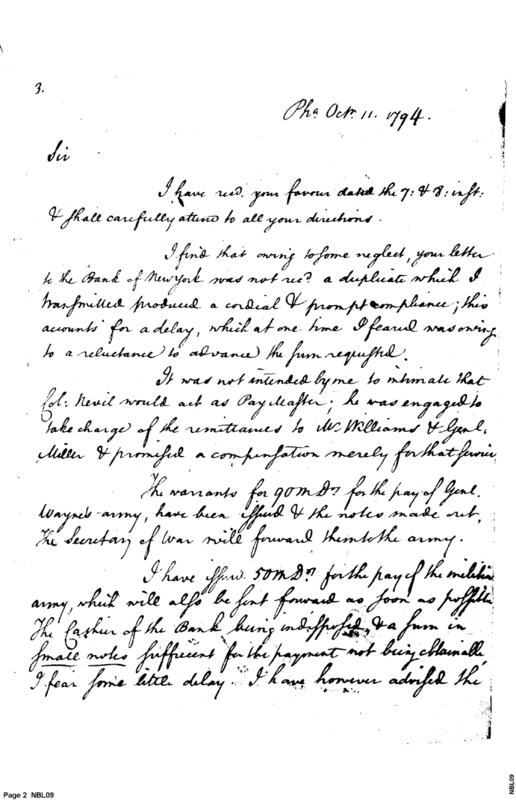 3.
Pha Octr. 11. 1794.
Sir
I have recd. your favour dated the 7: & 8: inst:
& shall carefully attend to all your directions.
I find that owing to some neglect, your letter
to the Bank of New York was not recd. a duplicate which I
transmitted produced a cordial & prompt compliance; this
accounts for a delay, which at one time I feared was owing
to a reluctance to advance the sum requested.
It was not intended by me to intimate that
Col: Nevil would act as Pay Master; he was engaged to
take charge of the remittances to Mr. Williams & Genl.
Miller & promised a compensation merely for that service
The warrants for 90 m Drs for the pay of Genl.
Wayne's army, have been issued & the notes made out,
The Secretary of War will forward them to the army.
I have issued 50 m Drs for the pay of the militia
army, which will also be sent forward as soon as possible
The Cashier of the Bank being indisposed, & a sum in
small notes sufficient for the payment not being obtainable,
I fear some little delay. I have however advised the
Page 2 NBL09
NBL09